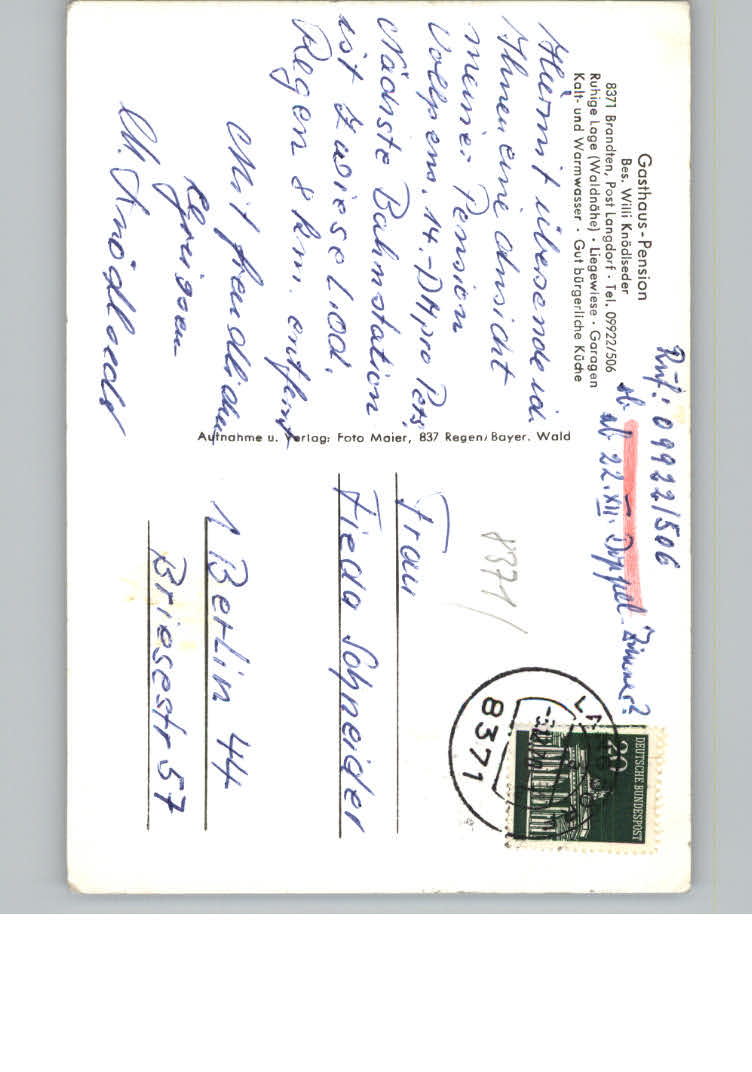 Gasthaus-Pension
Bes. Willi Knödlseder
8371 Brandten, Post Langdorf · Tel. 09922/506
Ruhige Lage (Waldnähe) · Liegewiese · Garagen
Kalt- und Warmwasser · Gut bürgerliche Küche
Ruf: 09922/506
ab 22. XII. Doppel-Zimmer?
Hiermit übersende ich
Ihnen eine Ansicht
meiner Pension
Vollpens. 14.- DM pro Pers.
Nächste Bahnstation
ist Zwiesel od.
Regen 8 km. entfernt
Mit freundlichen
Grüssen
W. Knödlseder
Aufnahme u. Verlag: Foto Maier, 837 Regen/Bayer. Wald
8371
Frau
Frieda Schneider
1 Berlin 44
Briesestr 57
DEUTSCHE BUNDESPOST
20
8371